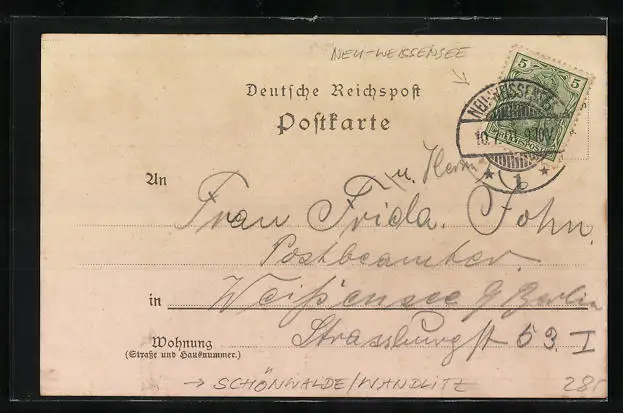 NEU-WEISSENSEE
Deutsche Reichspost
Postkarte
5 5
NEU-WEISSENSEE
9-10V
* 1 *
u. Herrn
An
Frau Frida John.
Postbeamter
in Weißensee b/Berlin
Strassburgst 53. I
Wohnung
(Straße und Hausnummer.)
→ SCHÖNWALDE/WANDLITZ